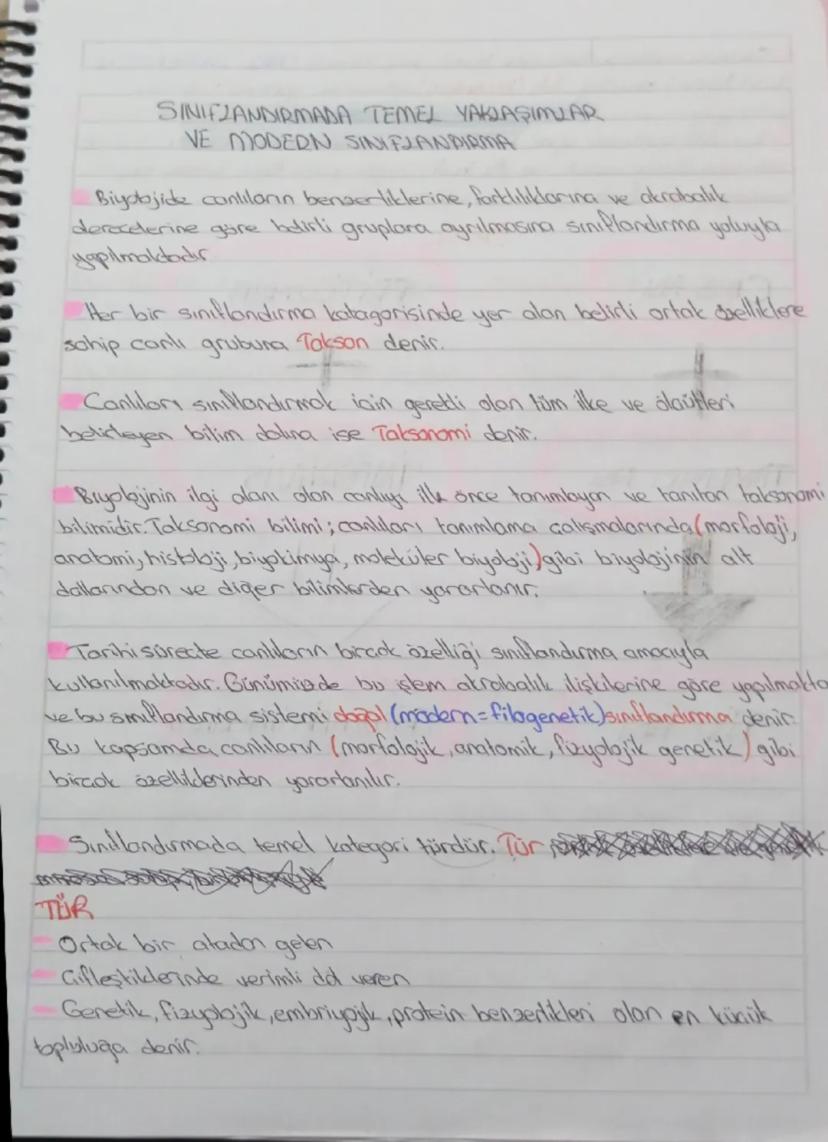 SINIFLANDIRMADA TEMEL YAKLAŞIMLAR
VE MODERN SINIFLANDIRMA
Biyolojide canlıların benzerliklerine, farklılıklarına ve akrabalık
derecelerine göre belirli gruplara ayrılmasına sınıflandırma yoluyla
yapılmaktadır
Her bir sınıflandırma katagorisinde yer alan belirli ortak özelliklere
sahip canlı grubuna Takson denir.
Canlıları sınıflandırmak için gerekli olan tüm ilke ve ölçütleri
belirleyen bilim dalına ise Taksonomi denir.
Biyolojinin ilgi alanı olan canlıyı ilk önce tanımlayan ve tanıtan taksonomi
bilimidir. Taksonomi bilimi; canlıları tanımlama çalışmalarında (morfoloji,
anatomi, histoloji, biyokimya, moleküler biyoloji) gibi biyolojinin alt
dallarından ve diğer bilimlerden yararlanır.
Tarihi süreçte canlıların birçok özelliği sınıflandırma amacıyla
kullanılmaktadır. Günümüzde bu işlem akrabalık ilişkilerine göre yapılmakta
ve bu sınıflandırma sistemi doğal (modern = filogenetik) sınıflandırma denir.
Bu kapsamda canlıların (morfolojik, anatomik, fizyolojik genetik) gibi
birçok özelliklerinden yararlanılır.
Sınıflandırmada temel kategori türdür. Tür
TÜR
- Ortak bir atadan gelen
- Çiftleştiklerinde verimli döl veren
- Genetik, fizyolojik, embriyojik, protein benzerlikleri olan en küçük
topluluğa denir.